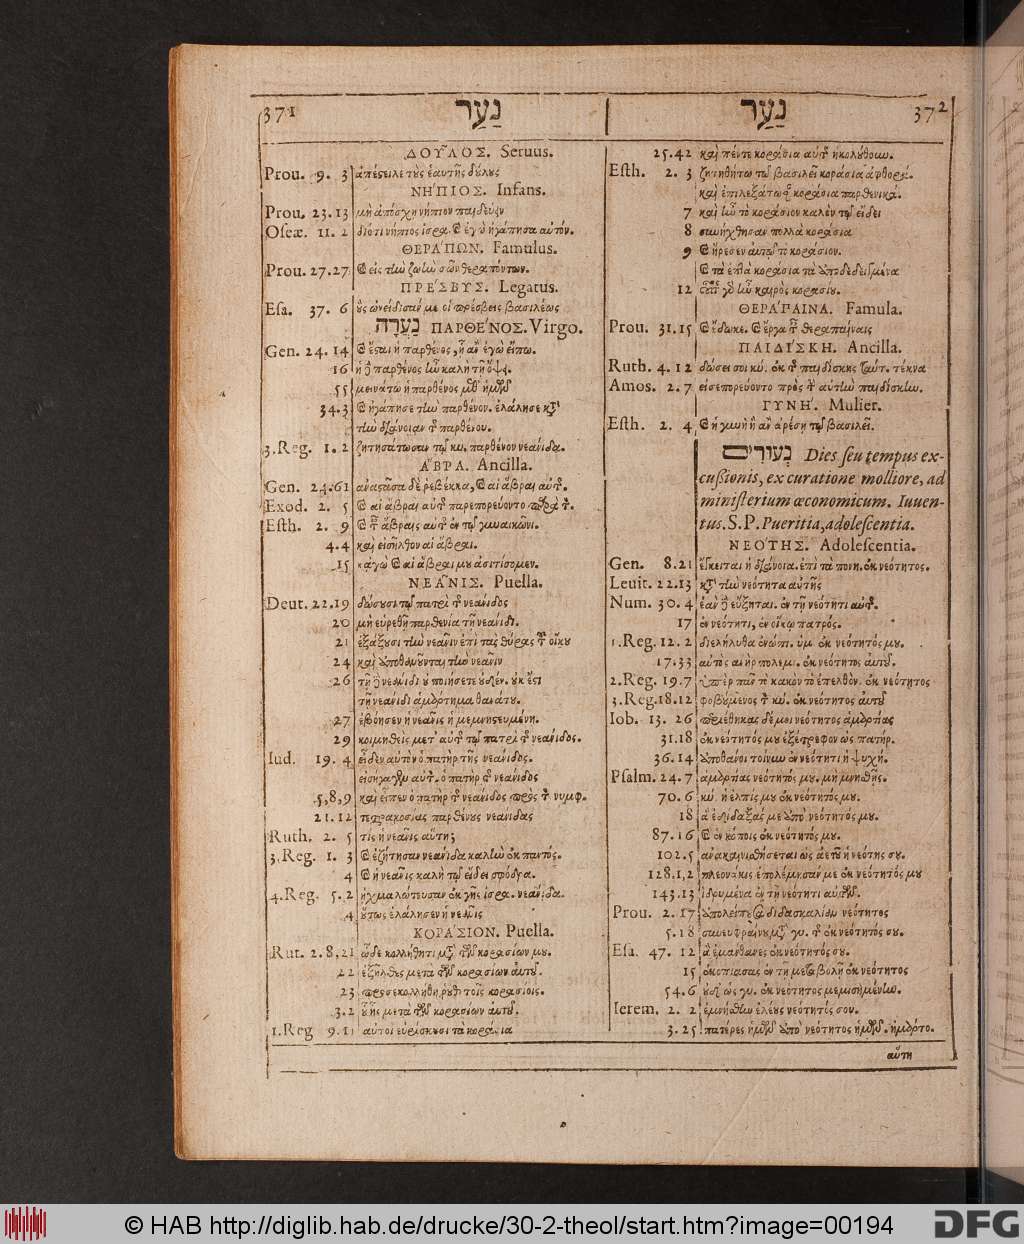 371 נַעַר
ΔΟΥ͂ΛΟΣ. Seruus.
Prou. 9. 3 ἀπέστειλε τοὺς ἑαυτῆς δούλους
ΝΗ΄ΠΙΟΣ. Infans.
Prou. 23.13 μὴ ἀπόσχῃ νήπιον παιδεύειν
Oseæ. 11. 2 διότι νήπιος ἰσρα. καὶ ἐγὼ ἠγάπησα αὐτόν.
ΘΕΡΑ΄ΠΩΝ. Famulus.
Prou. 27.27 καὶ εἰς τὴν ζωὴν σῶν θεραπόντων.
ΠΡΕ΄ΣΒΥΣ. Legatus.
Esa. 37. 6 οὓς ὠνείδισάν με οἱ πρέσβεις βασιλέως
נַעֲרָה ΠΑΡΘΕ΄ΝΟΣ. Virgo.
Gen. 24.14 καὶ ἔσται ἡ παρθένος, ᾗ ἂν ἐγὼ εἴπω.
16 ἡ δὲ παρθένος ἦν καλὴ τῇ ὄψει.
55 μεινάτω ἡ παρθένος μεθ' ἡμῶν
34.3 καὶ ἠγάπησε τὴν παρθένον. ἐλάλησε κατὰ
τὴν διάνοιαν τῆς παρθένου.
3.Reg. 1.2 ζητησάτωσαν τῷ κυ. παρθένον νεάνιδα.
ἍΒΡΑ. Ancilla.
Gen. 24.61 ἀναστᾶσα δὲ ῥεβέκκα, καὶ αἱ ἅβραι αὐτῆς.
Exod. 2. 5 καὶ αἱ ἅβραι αὐτῆς παρεπορεύοντο παρὰ τ.
Esth. 2. 9 καὶ τὰς ἅβρας αὐτῆς ἐν τῷ γυναικῶνι.
4.4 καὶ εἰσῆλθον αἱ ἅβραι.
15 καγὼ καὶ αἱ ἅβραι μου ἀσιτίσομεν.
ΝΕΑ͂ΝΙΣ. Puella.
Deut. 22.19 δώσουσι τῷ πατρὶ τῆς νεάνιδος
20 μὴ εὑρεθῇ παρθενία τῇ νεάνιδι.
21 ἐξάξουσι τὴν νεᾶνιν ἐπὶ τὰς θύρας τοῦ οἴκου
24 καὶ ἀποθανοῦνται τὴν νεᾶνιν
26 τῇ δὲ νεάνιδι οὐ ποιήσετε οὐδέν. οὐκ ἔστι
τῇ νεάνιδι ἁμάρτημα θανάτου.
27 ἐβόησεν ἡ νεᾶνις ἡ μεμνηστευμένη.
29 κοιμηθεὶς μετ' αὐτῆς τῷ πατρὶ τῆς νεάνιδος.
Iud. 19. 4 εἶδεν αὐτὸν ὁ πατὴρ τῆς νεάνιδος.
εἰσήγαγεν αὐτ. ὁ πατὴρ τῆς νεάνιδος
5,8,9 καὶ εἶπεν ὁ πατὴρ τῆς νεάνιδος πρὸς τ. νυμφ.
21.12 τετρακοσίας παρθένους νεάνιδας
Ruth. 2. 5 τίς ἡ νεᾶνις αὕτη;
3.Reg. 1. 3 καὶ ἐζήτησαν νεάνιδα καλὴν ἐκ παντός.
4 καὶ ἡ νεᾶνις καλὴ τῷ εἴδει σφόδρα.
4.Reg. 5.2 ᾐχμαλώτευσαν ἐκ γῆς ἰσρα. νεάνιδα.
4 οὕτως ἐλάλησεν ἡ νεᾶνις
ΚΟΡΑ΄ΣΙΟΝ. Puella.
Rut. 2.8,21 ὧδε κολλήθητι μετὰ τῶν κορασίων μου.
22 ἐξῆλθες μετὰ τῶν κορασίων αὐτοῦ.
23 προσεκολλήθη ῥοὺθ τοῖς κορασίοις.
3.2 ἦς μετὰ τῶν κορασίων αὐτοῦ.
1.Reg 9.11 αὐτοὶ εὑρίσκουσι τὰ κοράσια
נַעַר 372
25.42 καὶ πέντε κοράσια αὐτῆς ἠκολούθουν.
Esth. 2. 3 ζητηθήτω τῷ βασιλεῖ κοράσια ἄφθορα.
καὶ ἐπιλεξάτωσαν κοράσια παρθενικά.
7 καὶ ἦν τὸ κοράσιον καλὸν τῷ εἴδει
8 συνήχθησαν πολλὰ κοράσια
9 καὶ ἤρεσεν αὐτῷ τὸ κοράσιον.
καὶ τὰ ἑπτὰ κοράσια τὰ ἀποδεδειγμένα
12 οὗτος γὰρ ἦν καιρὸς κορασίου.
ΘΕΡΑ΄ΠΑΙΝΑ. Famula.
Prou. 31.15 καὶ ἔδωκε. καὶ ἔργα τ. θεραπαίναις
ΠΑΙΔΙ΄ΣΚΗ. Ancilla.
Ruth. 4. 12 δώσει σοι κύ. ἐκ τῆς παιδίσκης ταύτ. τέκνα
Amos. 2. 7 εἰσεπορεύοντο πρὸς τ. αὐτὴν παιδίσκην.
ΓΥΝΗ΄. Mulier.
Esth. 2. 4 καὶ ἡ γυνὴ ἣ ἂν ἀρέσῃ τῷ βασιλεῖ.
נְעוּרִים Dies seu tempus ex-
cussionis, ex curatione molliore, ad
ministerium œconomicum. Iuuen-
tus. S.P. Pueritia, adolescentia.
ΝΕΟ΄ΤΗΣ. Adolescentia.
Gen. 8.21 ἔγκειται ἡ διάνοια. ἐπὶ τὰ πονη. ἐκ νεότητος.
Leuit. 22.13 κατὰ τὴν νεότητα αὐτῆς
Num. 30. 4 ἐὰν δὲ εὔξηται. ἐν τῇ νεότητι αὐτῆς.
17 ἐν νεότητι, ἐν οἴκῳ πατρός.
1.Reg. 12. 2 διελήλυθα ἐνώπι. ὑμ. ἐκ νεότητός μου.
17.33 αὐτὸς ἀνὴρ πολεμ. ἐκ νεότητος αὐτοῦ.
2.Reg. 19.7 ὑπὲρ πᾶν τὸ κακὸν τὸ ἐπελθὸν. ἐκ νεότητος
3.Reg. 18.12 φοβούμενος τ. κύ. ἐκ νεότητος αὐτοῦ
Iob. 13. 26 περιέθηκας δέ μοι νεότητος ἁμαρτίας
31.18 ἐκ νεότητός μου ἐξέτρεφον ὡς πατήρ.
36.14 ἀποθάνοι τοίνυν ἐν νεότητι ἡ ψυχή.
Psalm. 24.7 ἁμαρτίας νεότητός μου. μὴ μνησθῇς.
70. 6 κύ. ἡ ἐλπίς μου ἐκ νεότητός μου.
18 ἃ ἐδίδαξάς με ἀπὸ νεότητός μου.
87.16 καὶ ἐν κόποις ἐκ νεότητός μου.
102.5 ἀνακαινισθήσεται ὡς ἀετοῦ ἡ νεότης σου.
128.1,2 πλεονάκις ἐπολέμησάν με ἐκ νεότητός μου
143.13 ἱδρυμένα ἐν τῇ νεότητι αὐτῶν.
Prou. 2. 17 ἀπολείπουσα διδασκαλίαν νεότητος
5.18 συνευφραίνου μετὰ γυ. τῆς ἐκ νεότητός σου.
Esa. 47. 12 ἃ ἐμάνθανες ἐκ νεότητός σου.
15 ἐκοπίασας ἐν τῇ μεταβολῇ ἐκ νεότητος
54.6 οὐδ' ὡς γυ. ἐκ νεότητος μεμισημένην.
Ierem. 2. 2 ἐμνήσθην ἐλέους νεότητός σου.
3. 25 πατέρες ἡμῶν ἀπὸ νεότητος ἡμῶν. ἡμάρτο.
αὕτη
© HAB http://diglib.hab.de/drucke/30-2-theol/start.htm?image=00194
DFG